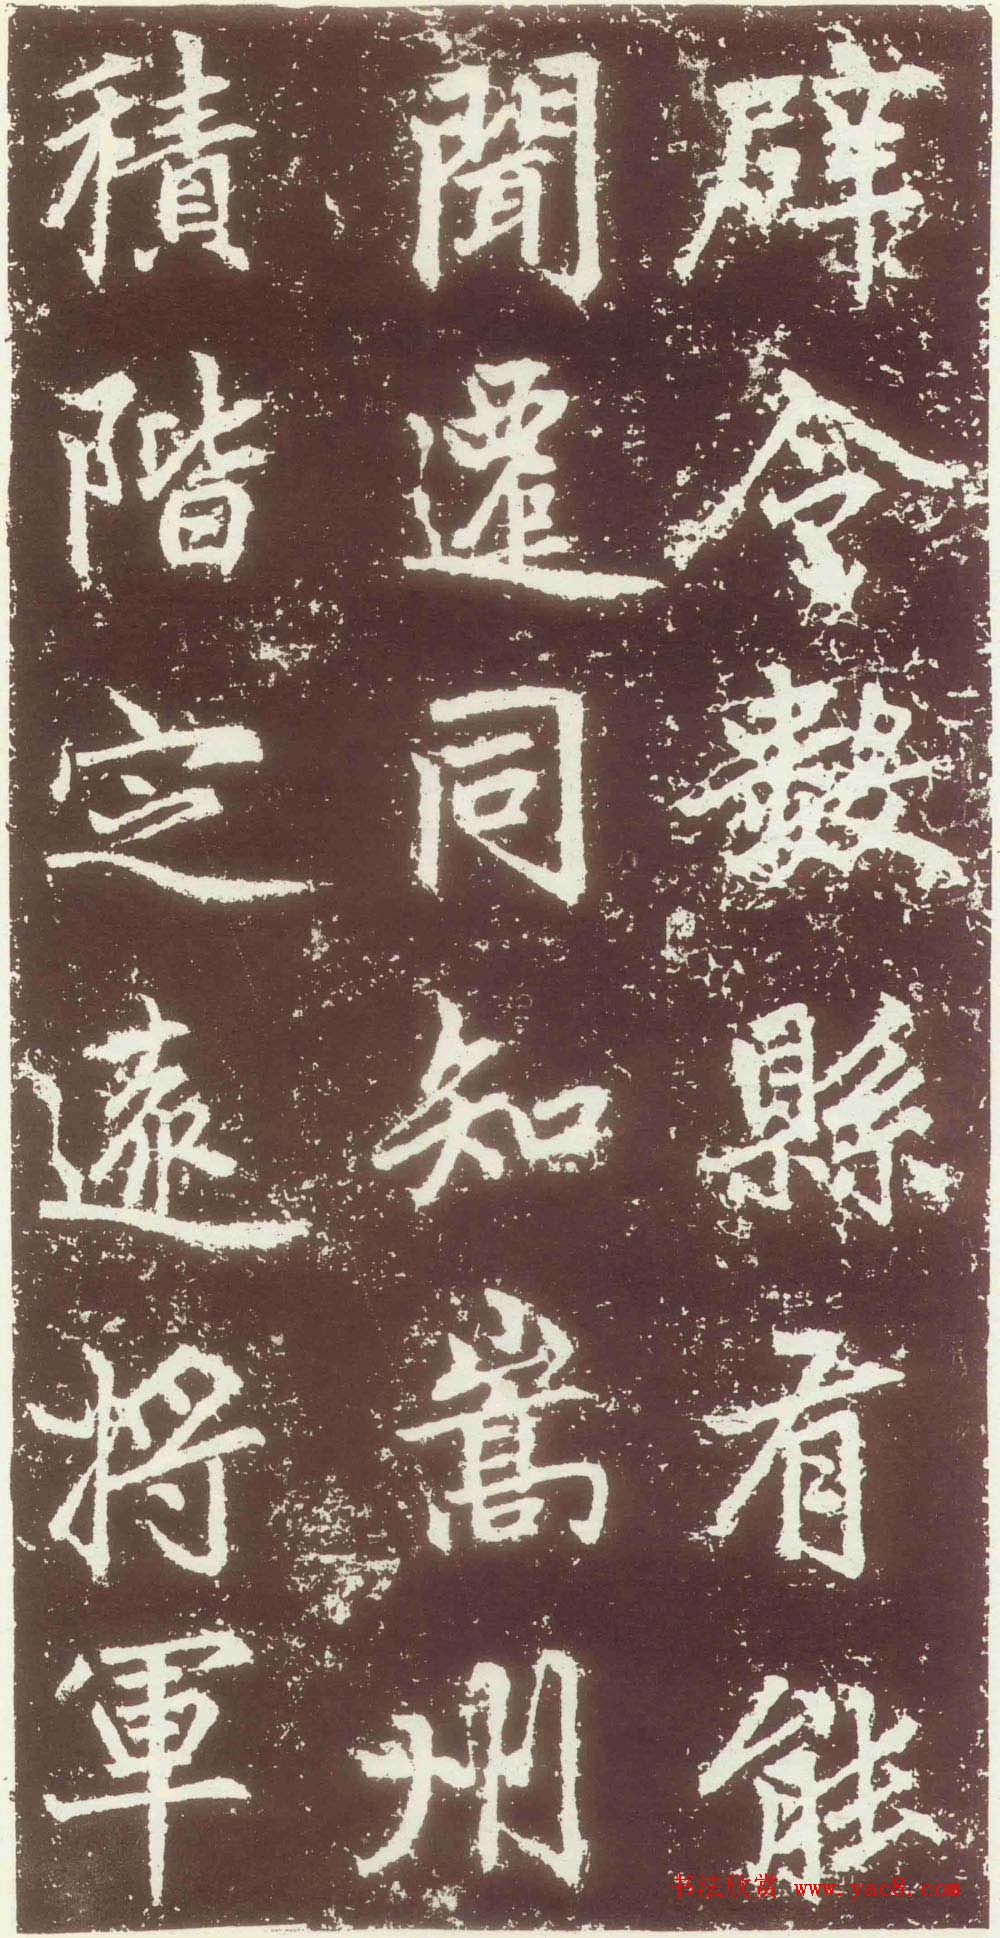 辟令數縣有能
聞遷同知嵩州
積階定遠将軍
书法欣赏 www.yac8.com